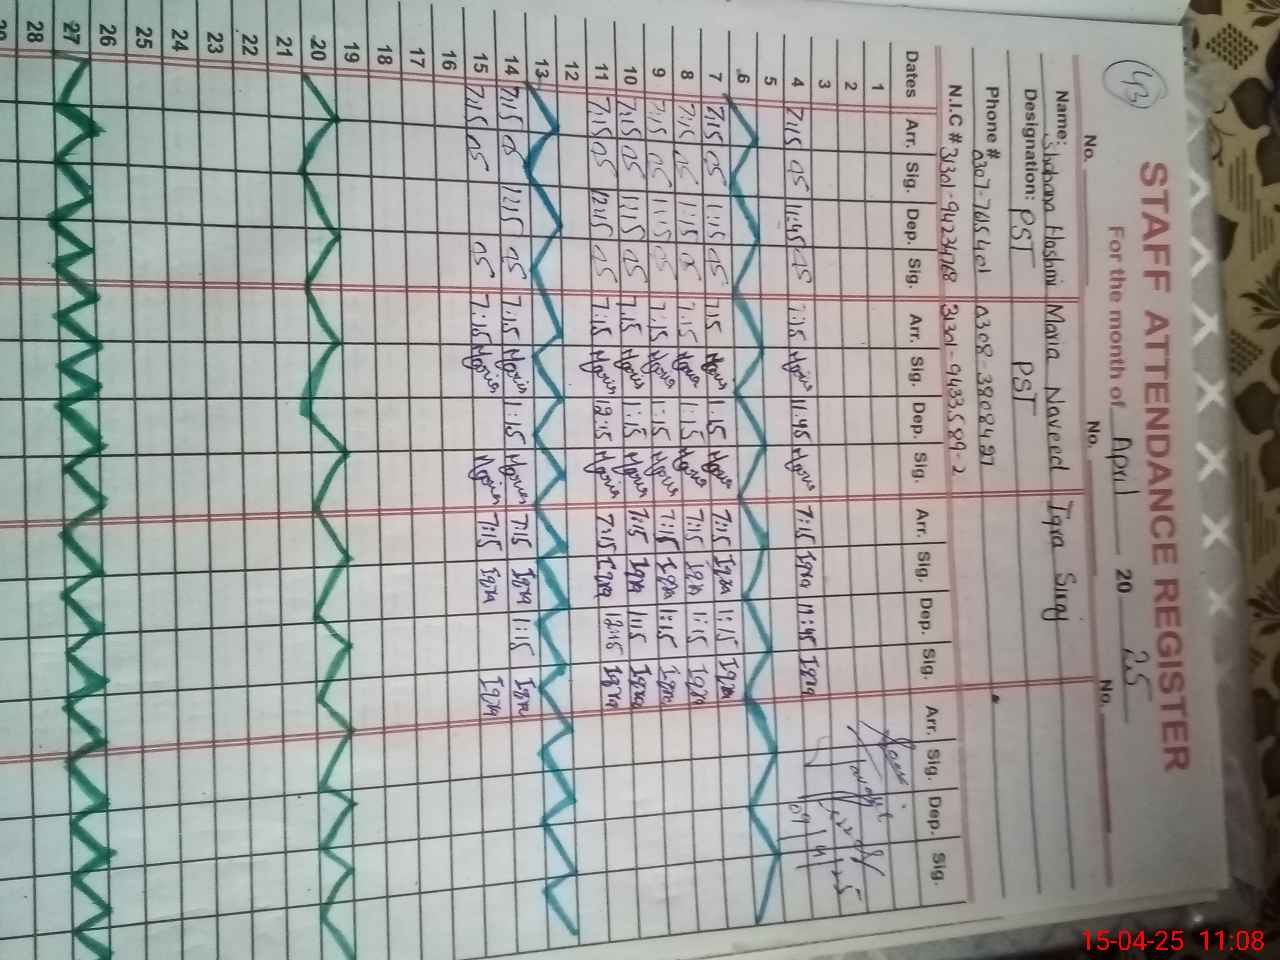 43
STAFF ATTENDANCE REGISTER
For the month of April 2025
No. No. No.
Name: Shabana Hashmi Maria Naveed Iqra Siraj
Designation: PST PST
Phone # 0307-7615401 0308-3908427
N.I.C # 31301-94234768 31301-9433589-2
Dates Arr. Sig. Dep. Sig. Arr. Sig. Dep. Sig. Arr. Sig. Dep. Sig. Arr. Sig. Dep. Sig.
1
2
3
4 7:15 11:45 7:15 Maria 11:45 Maria 7:15 Iqra 11:45 Iqra
5
6
7 7:15 1:15 7:15 Maria 1:15 Maria 7:15 Iqra 1:15 Iqra
8 7:15 1:15 7:15 Maria 1:15 Maria 7:15 Iqra 1:15 Iqra
9 7:15 1:15 7:15 Maria 1:15 Maria 7:15 Iqra 1:15 Iqra
10 7:15 1:15 7:15 Maria 1:15 Maria 7:15 Iqra 1:15 Iqra
11 7:15 12:15 7:15 Maria 12:15 Maria 7:15 Iqra 12:15 Iqra
12
13
14 7:15 12:15 7:15 Maria 1:15 Maria 7:15 Iqra 1:15 Iqra
15 7:15 7:15 Maria Maria 7:15 Iqra Iqra
16
17
18
19
20
21
22
23
24
25
26
27
28
15-04-25 11:08